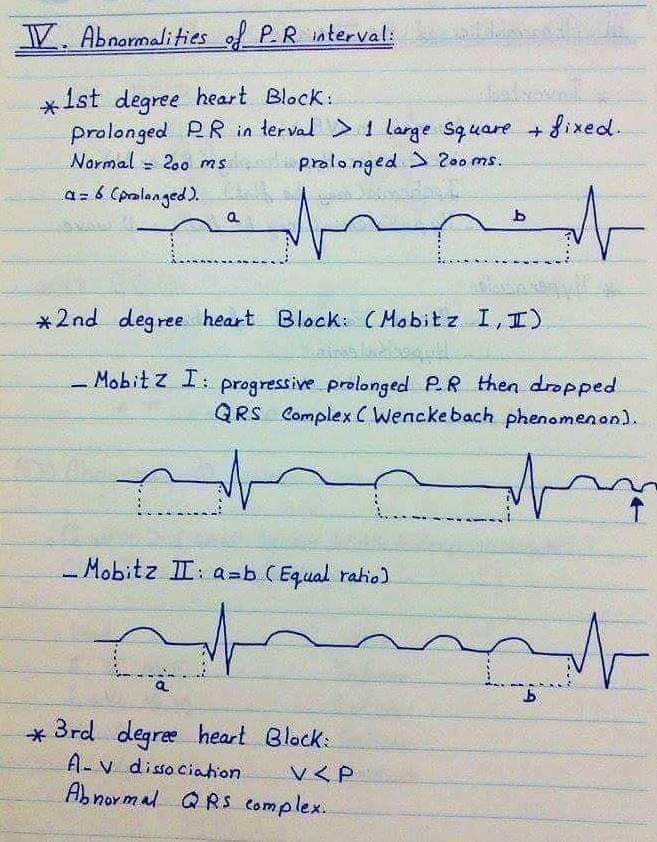 IV. Abnormalities of P-R interval:
* 1st degree heart Block:
prolonged P-R in terval > 1 large square + fixed.
Normal = 200 ms prolonged > 200 ms.
a = 6 (prolonged).
a b
* 2nd degree heart Block: (Mobitz I, II)
- Mobitz I: progressive prolonged P-R then dropped
QRS Complex (Wenckebach phenomenon).
- Mobitz II: a=b (Equal ratio)
a b
* 3rd degree heart Block:
A-V dissociation V < P
Abnormal QRS complex.